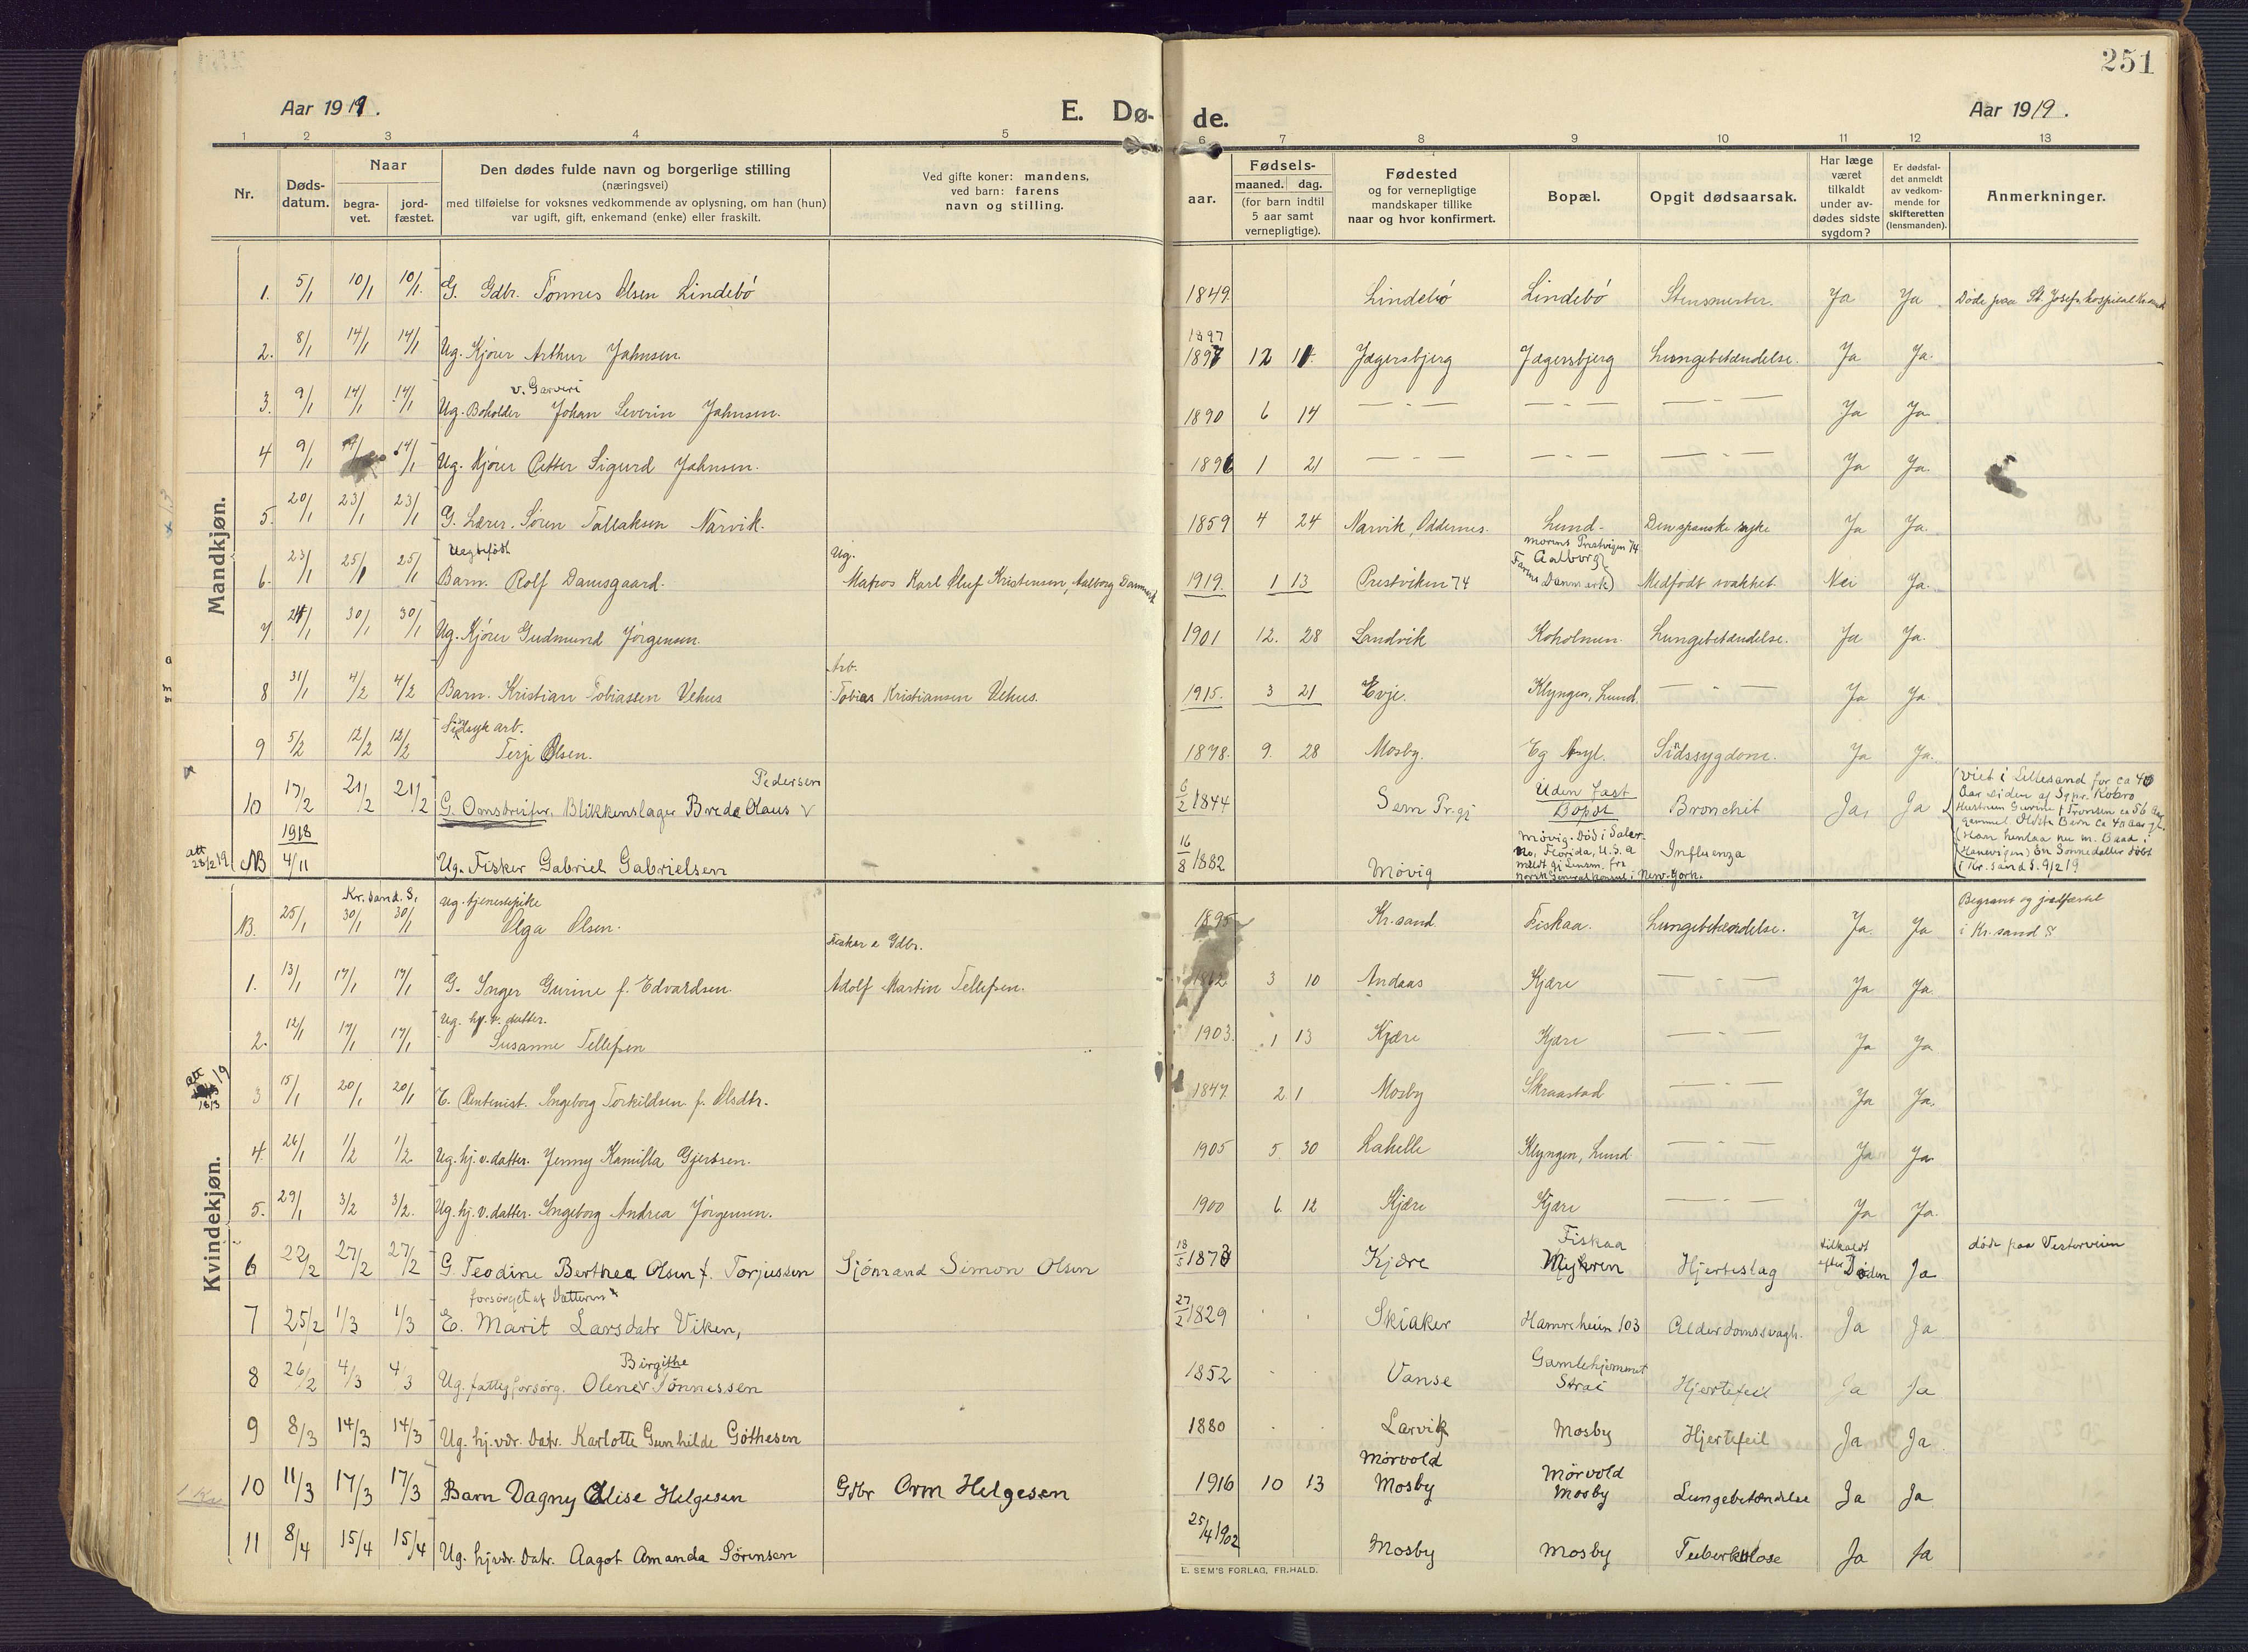 251
Aar 1919.
E. Dø-
de.
Aar 1919.
1 2 3 4 5 6 7 8 9 10 11 12 13
Nr.
Døds-
datum.
Naar
begra-
vet.
jord-
fæstet.
Den dødes fulde navn og borgerlige stilling
(næringsvei)
med tilføielse for voksnes vedkommende av oplysning, om han (hun)
var ugift, gift, enkemand (enke) eller fraskilt.
Ved gifte koner: mandens,
ved barn: farens
navn og stilling.
aar.
Fødsels-
maaned. dag.
(for barn indtil
5 aar samt
vernepligtige).
Fødested
og for vernepligtige
mandskaper tillike
naar og hvor konfirmert.
Bopæl.
Opgit dødsaarsak.
Har læge
været
tilkaldt
under av-
dødes sidste
sygdom?
Er dødsfal-
det anmeldt
av vedkom-
mende for
skifteretten
(lensmanden).
Anmerkninger.
Mandkjøn.
1. 5/1 10/1 10/1. G. Gdbr. Tönnes Olsen Lindebö 1849. Lindebö Lindebö Ja Ja Döde paa St. Josefs hospital
1897
2. 8/1 14/1 14/1 Ug. Kjörer Arthur Jahnsen. 1897 12 11. Jægersbjerg Jægersbjerg Lungebetændelse. Ja Ja.
v. Garveri
3. 9/1 14/1 14/1 Ug. Boholder Johan Severin Jahnsen. 1890 6 14 — " — — " — — " — Ja Ja.
4 9/1 14/1 Ug. Kjörer Petter Sigurd Jahnsen. 1896 1 21 — " — — " — — " — Ja Ja.
5. 20/1 23/1 23/1 G. Lærer. Sören Tallaksen Narvik. 1859 4 24 Narvik, Oddernes. Lund. Den spanske syke Ja Ja.
Uegtefödt
Ug.
morens Prestvigen 74
Farens Aalborg
6. 23/1 25/1 25/1 Barn. Rolf Damsgaard. Matros Karl Oluf Kristensen, Aalborg Danmark 1919. 1 13 Prestviken 74 Danmark) Medfödt svakhet Nei Ja.
7 24/1 30/1 30/1 Ug. Kjörer Gudmund Jörgensen. 1901 12. 28 Landvik Koholmen. Lungebetændelse. Ja Ja.
Arb.
8 31/1 4/2 4/2 Barn. Kristian Tobiassen Vehus Tobias Kristiansen Vehus. 1915. 3 21 Evje. Klyngen, Lund. — " — Ja Ja.
Sindsyk arb.
9 5/2 12/2 12/2 Terje Olsen. 1878. 9. 28 Mosby. Eg Asyl. Sindssygdom. Ja Ja.
Pedersen
10 17/2 21/2 21/2 G. Omstreifer, Blikkenslager Brede Olaus v 6/2 1844 Sem Pr.gj Uden fast
Bopæl Bronchit Ja, Ja
(Viet i Lillesand for ca 40
Aar siden af Sgpr. Kobro
Hustruen Gurine f Fronsen ca 56 Aar
gammel. Ældste Barn ca 40 aar gl.
1918
att
28/2 19 NB 4/11 Ug. Fisker Gabriel Gabrielsen 16/8 1882 Mövig Mövig. Död i Saler-
no, Florida, U.S.A
meldt gj Lensm. fra
Norsk Generalkonsul i New-York. Influenza
i Kr.sand S. 9/2 19
Kvindekjøn.
Kr.sand. S.
ug. tjenestepike
NB. 25/1 30/1 30/1 Olga Olsen. 1895 Kr.sand. Fiskaa. Lungebetændelse. Ja. Ja Begravet og jordfæstet
i Kr.sand S
Fisker & Gdbr.
1. 13/1 17/1 17/1 G. Inger Gurine f. Edvardsen. Adolf Martin Tellefsen. 3 10 Andaas Kjære — " — Ja Ja.
Ug. hj. v. datter.
2. 12/1 17/1 17/1 Susanne Tellefsen 1903. 1 13 Kjære Kjære — " — Ja Ja
att
18/3 19
3 15/1 20/1 20/1 E. Rentenist. Ingeborg Torkildsen f. Olsdtr. 1847. 2 1 Mosby Skraastad — " — Ja Ja.
4. 26/1 1/2 1/2. Ug. hj. v. datter. Jenny Kamilla Gjertsen. 1905 5. 30 Lahelle Klyngen, Lund — " — Ja Ja.
5. 29/1 3/2 3/2. Ug. hj. v. datter. Ingeborg Andrea Jörgensen. 1900 6. 12 Kjære Kjære — " — Ja Ja.
6 22/2 27/2 27/2 G. Teodine Berthea Olsen f. Torjussen Sjömand Simon Olsen 18/5 1873 Kjære Fiskaa
Myhren Hjerteslag tilkaldt
efter Döden Ja döde paa Vesterveien
forsörget af Datteren
7 25/2 1/3 1/3 E. Marit Larsdatr Viken, 27/2 1829 Skiaker Hamreheien 103 Alderdomssvagh. Ja Ja
Birgithe
8 26/2 4/3 4/3 Ug. fattigforsörg. Olene v Tönnessen 1852 Vanse Gamlehjemmet
Strai Hjertefeil Ja Ja
9 8/3 14/3 14/3 Ug. hj.vær. datr. Karlotte Gunhilde Göthesen 1880 Larvik Mosby Hjertefeil Ja Ja
10 11/3 17/3 17/3 Barn Dagny Elise Helgesen Gdbr Orm Helgesen 1916 10 13 Mörvold
Mosby Mörvold
Mosby Lungebetændelse Ja Ja
11 8/4 15/4 15/4 Ug. hjvær. datr. Aagot Amanda Sörensen 25/4 1902 Mosby Mosby Tuberkulose Ja Ja
E. SEM'S FORLAG, FR.HALD.